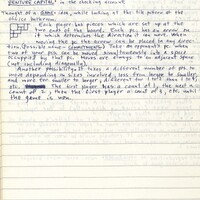 VENTURE CAPITAL" in the checking account.
Thought of a GAME-idea, while looking at the tile pattern of the
office bathroom:
Each player has pieces which are set up at the
two ends of the board. Each pc. has an arrow on
it which determines the direction it can move. When
moving the pc. the arrow can be placed in any direc-
tion. (Possible name - COMMITMENTS) Take an opponent's pc. when
two of your pcs. can be moved simultaneously into a space
occupied by that pc. Moves are always to an adjacent space
(not including diagonally).
Another possibility: it takes a different number of pts to
move depending on sizes involved, with from larger to smaller,
and more for smaller to larger, different for 1 to 2 than 1 to 3
etc. The first player has a count of 1, the next a
count of 2, then the first player a count of 3, etc. until
the game is won.